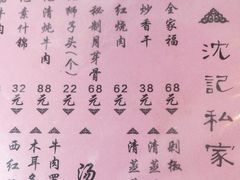 沈記私家
全家福
68元
炒香干
62元
红烧肉
58元
秘制月芽骨
68元
狮子头(个)
22元
清炖牛肉
88元
什锦
32元
剁椒
清蒸
清蒸
汤
牛肉
木耳
西红